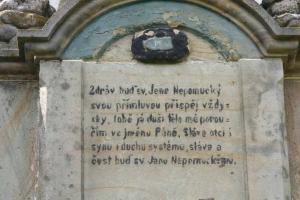 Zdráv buď sv. Jene Nepomucký
svou přímluvou přispěj vždy-
cky, tobě já duši tělo mé porou-
čím ve jménu Páně, Sláva otci i
synu i duchu svatému, sláva a
čest buď sv. Janu Nepomuckému.